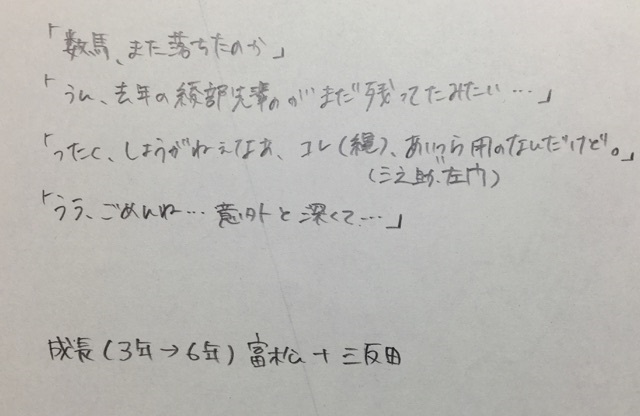 「数馬、また落ちたのか」
「うん、去年の綾部先輩のがまだ残ってたみたい…」
「ったく、しょうがねえなあ、コレ(縄)、あいつら用のなんだけど。」
(三之助、左門)
「うう、ごめんね…意外と深くて…」
成長(3年→6年)富松+三反田